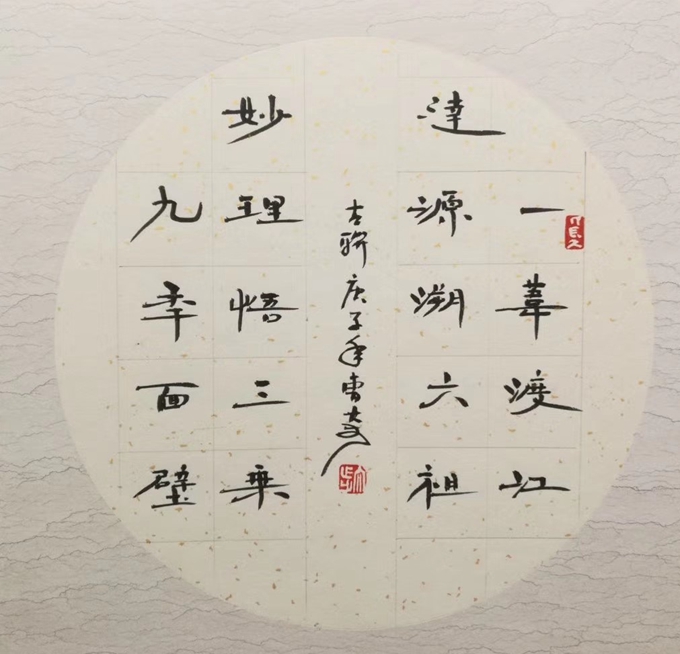 一葦渡江
達源溯六祖
九年面壁
妙理悟三乘
古聯庚子年曹